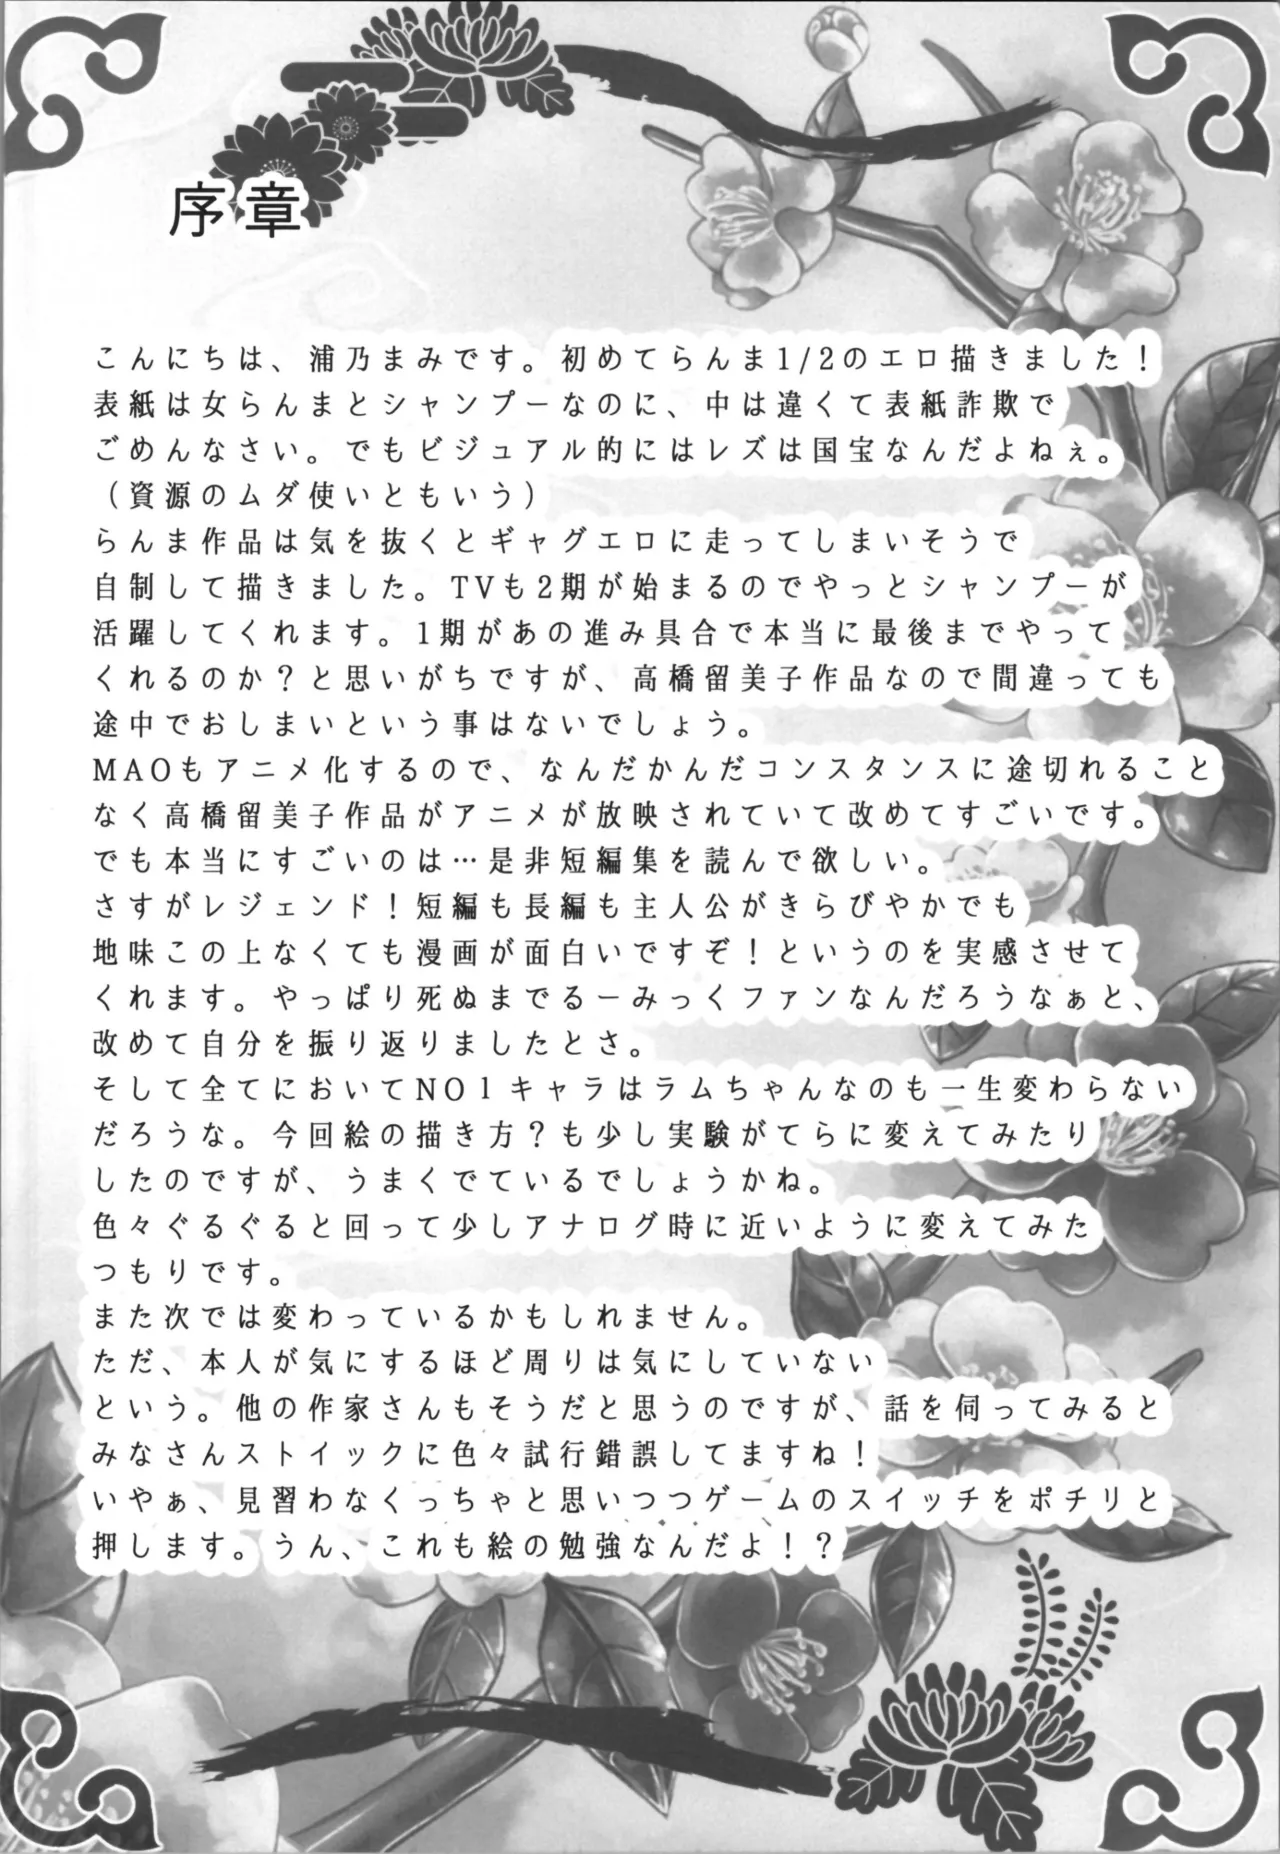 序章
こんにちは、浦乃まみです。初めてらんま1/2のエロ描きました！
表紙は女らんまとシャンプーなのに、中は違くて表紙詐欺で
ごめんなさい。でもビジュアル的にはレズは国宝なんだよねぇ。
（資源のムダ使いともいう）
らんま作品は気を抜くとギャグエロに走ってしまいそうで
自制して描きました。TVも2期が始まるのでやっとシャンプーが
活躍してくれます。1期があの進み具合で本当に最後までやって
くれるのか？と思いがちですが、高橋留美子作品なので間違っても
途中でおしまいという事はないでしょう。
MAOもアニメ化するので、なんだかんだコンスタンスに途切れること
なく高橋留美子作品がアニメが放映されていて改めてすごいです。
でも本当にすごいのは…是非短編集を読んで欲しい。
さすがレジェンド！短編も長編も主人公がきらびやかでも
地味この上なくても漫画が面白いですぞ！というのを実感させて
くれます。やっぱり死ぬまでるーみっくファンなんだろうなぁと、
改めて自分を振り返りましたとさ。
そして全てにおいてNO１キャラはラムちゃんなのも一生変わらない
だろうな。今回絵の描き方？も少し実験がてらに変えてみたり
したのですが、うまくでているでしょうかね。
色々ぐるぐると回って少しアナログ時に近いように変えてみた
つもりです。
また次では変わっているかもしれません。
ただ、本人が気にするほど周りは気にしていない
という。他の作家さんもそうだと思うのですが、話を伺ってみると
みなさんストイックに色々試行錯誤してますね！
いやぁ、見習わなくっちゃと思いつつゲームのスイッチをポチリと
押します。うん、これも絵の勉強なんだよ！？